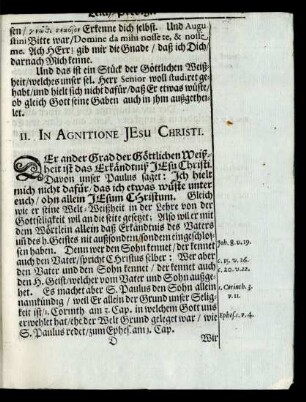 Leich-Predigt.
sen/ γνῶθι σεαυτὸν Erkenne dich selbst. Und Augu-
stini Bitte war/ Domine da mihi nosse te, & nosse
me. Ach HErr/ gib mir die Gnade/ daß ich Dich/
darnach Mich kenne.
Und das ist ein Stück der Göttlichen Weiß-
heit/ welches unser sel. Herr Senior woll studiret ge-
habt/ und hielt sich nicht dafür/ daß Er etwas wüste/
ob gleich Gott seine Gaben auch in ihm außgethei-
let.
II. IN AGNITIONE JEsu CHRISTI.
DEr ander Grad der Göttlichen Weiß-
heit ist das Erkäntniß JEsu Christi.
Davon unser Paulus saget: Ich hielt
mich nicht dafür/ das ich etwas wüste unter
euch/ ohn allein JEsum Christum. Gleich
wie er seine Welt-Weißheit in der Lehre von der
Gottseligkeit will an die seite gesetzet: Also wil er mit
dem Wörtlein allein daß Erkäntniß des Vaters
uñ des h. Geistes nit außschen/ sondern eingeschlos-
sen haben. Denn wer den Sohn kennet/ der kennet
auch den Vater/ spricht Christus selber: Wer aber
den Vater und den Sohn kennet/ der kennet auch
den H. Geist/ welcher vom Vater und Sohn außge-
het. Es machet aber S. Paulus den Sohn allein
namkündig/ weil Er allein der Grund unser Selig-
keit ist/ 1. Corinth. am 3. Cap. in welchen Gott uns
erwehlet hat/ ehe der Welt Grund geleget war/ wie
S. Paulus redet/ zum Ephes. am 1. Cap.
Joh. 8. v. 19.
c. 15. v. 26.
c. 20. v. 22.
1. Corinth. 3.
v. 11.
Ephes. 1. v. 4.
D
Wir